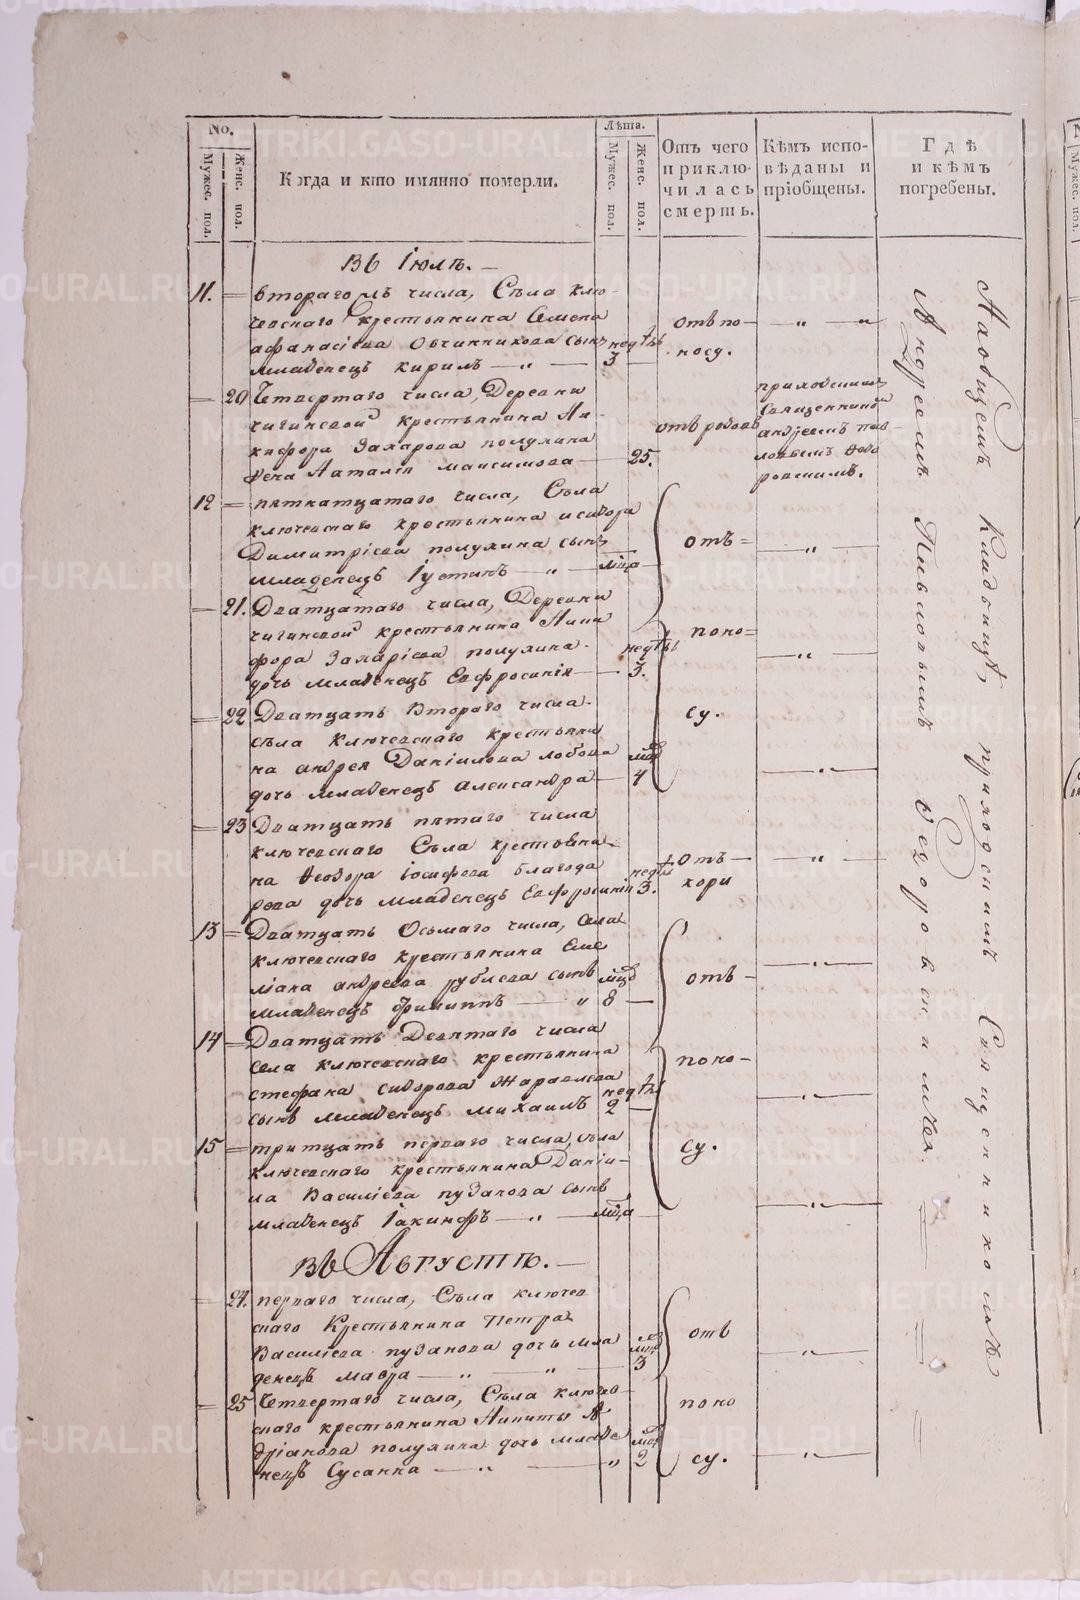 No.
Мужес. пол.
Женс. пол.
Когда и кто имянно померли.
Лѣта.
Мужес. пол.
Женс. пол.
Отъ чего
приклю-
чилась
смерть.
Кѣмъ испо-
вѣданы и
пріобщены.
Гдѣ
и кѣмъ
погребены.
Въ Іюлѣ.
11. втораго числа, Села Клю-
чевскаго крестьянина Семена
афанасіева Овчинникова сынъ
младенецъ Кирилъ
недѣль
3
отъ по-
носу.
20 Четвертаго числа, Деревни
чигинской крестьянина Ни-
кифора Захарова полухина
жена Наталія максимова
25.
отъ родовъ
приходскимъ
Священникомъ
андреемъ пив-
ловымъ
12 пятнатцатаго числа, Села
ключевскаго крестьянина исидора
Димитріева полухина сынъ
младенецъ Іустинъ
мца
отъ
21. Дватцатаго числа, Деревни
чигинской крестьянина Ники
фора Захаріева полухина
дочь младенецъ Евфросинія
недѣль
3.
поно
22 Дватцать Втораго числа
села Ключевскаго крестьяни
на андрея Даніилова лобова
дочь младенецъ александра
4
су.
23 Дватцать пятаго числа
ключевскаго Села крестьяни
на Ѳеодора іосифова благода
рева дочь младенецъ Евфросинія
недѣль
3.
Отъ
кори
13 Дватцать Осьмаго числа, села
ключевскаго крестьянина Еме
ліана андреева рублева сынъ
младенецъ Филиппъ
мцъ
8
отъ
14 Дватцать Девятаго числа
села ключевскаго крестьянина
стефана сидорова Жаравлева
сынъ младенецъ михаилъ
недѣль
2
поно
15 тритцать перваго числа, села
ключевскаго крестьянина Даніи-
ла Василіева пузанова сынъ
младенецъ Іакинфъ
мца
су.
Въ Августѣ.
24. перваго числа, Села ключев
скаго Крестьянина Петра
Василіева пузанова дочь мла
денецъ мавра
3
отъ
25 Четвертаго числа, Села ключев
скаго крестьянина Никиты А
дріанова полухина дочь младе
нецъ Сусанна
2
поно
су.
На общемъ Кладбищѣ, приходскимъ Священникомъ
Андреемъ Пивловымъ